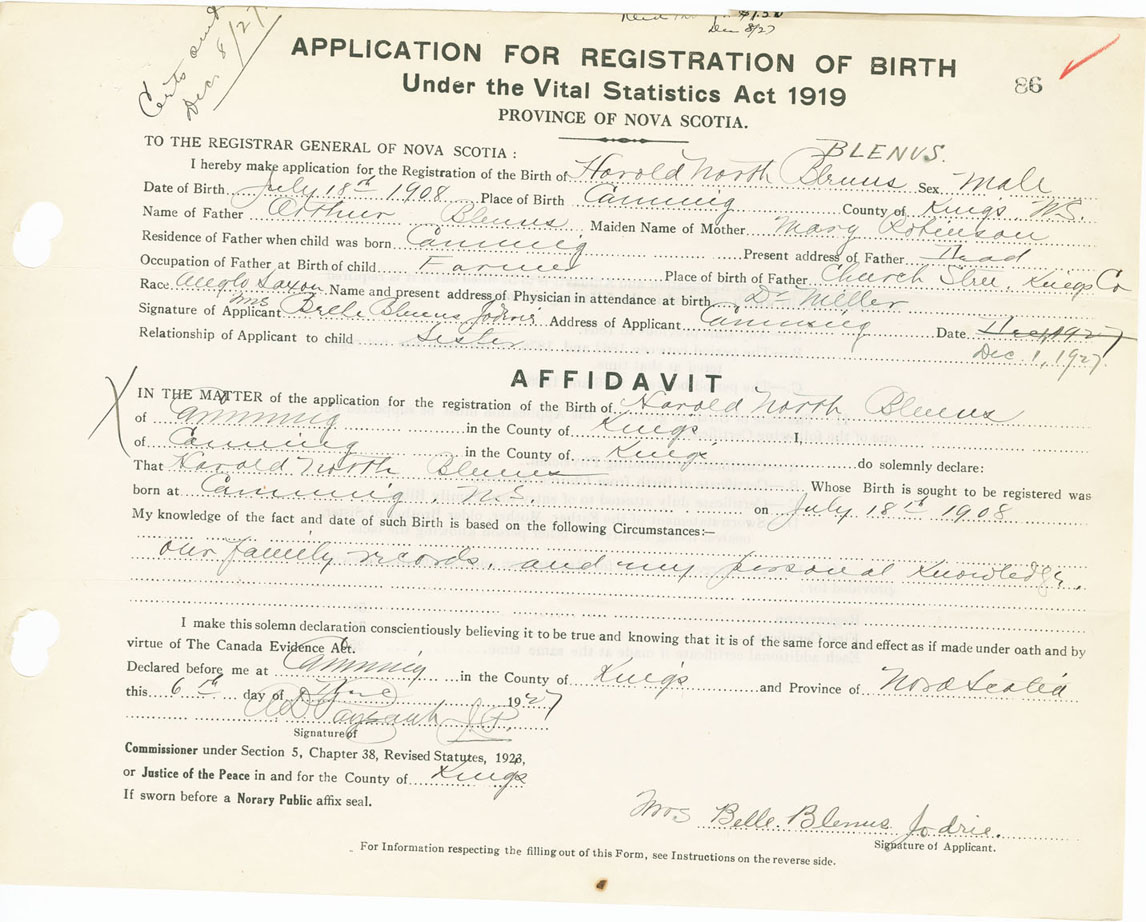 Certs sent
Dec. 8/27
$1.50
Dec 8/27
APPLICATION FOR REGISTRATION OF BIRTH
86
Under the Vital Statistics Act 1919
PROVINCE OF NOVA SCOTIA.
TO THE REGISTRAR GENERAL OF NOVA SCOTIA :
BLENUS.
I hereby make application for the Registration of the Birth of Harold North Blenus Sex Male
Date of Birth July 18th 1908 Place of Birth Canning County of Kings N.S.
Name of Father Arthur Blenus Maiden Name of Mother Mary Robinson
Residence of Father when child was born Canning Present address of Father Dead
Occupation of Father at Birth of child Farmer Place of birth of Father Church Street, Kings Co
Race Anglo Saxon Name and present address of Physician in attendance at birth Dr Miller
Signature of Applicant Mrs Belle Blenus Jodrie Address of Applicant Canning Date 1927
Relationship of Applicant to child Sister Dec. 1, 1927
AFFIDAVIT
IN THE MATTER of the application for the registration of the Birth of Harold North Blenus
of Canning in the County of Kings I,
of Canning in the County of Kings do solemnly declare:
That Harold North Blenus Whose Birth is sought to be registered was
born at Canning, N.S. on July 18th 1908
My knowledge of the fact and date of such Birth is based on the following Circumstances:—
our family records, and my personal knowledge.
I make this solemn declaration conscientiously believing it to be true and knowing that it is of the same force and effect as if made under oath and by
virtue of The Canada Evidence Act.
Declared before me at Canning in the County of Kings and Province of Nova Scotia
this 6th day of Dec 1927
J.P.
Signature of
Commissioner under Section 5, Chapter 38, Revised Statutes, 1923,
or Justice of the Peace in and for the County of Kings
If sworn before a Norary Public affix seal.
Mrs Belle Blenus Jodrie.
Signature of Applicant.
For Information respecting the filling out of this Form, see Instructions on the reverse side.